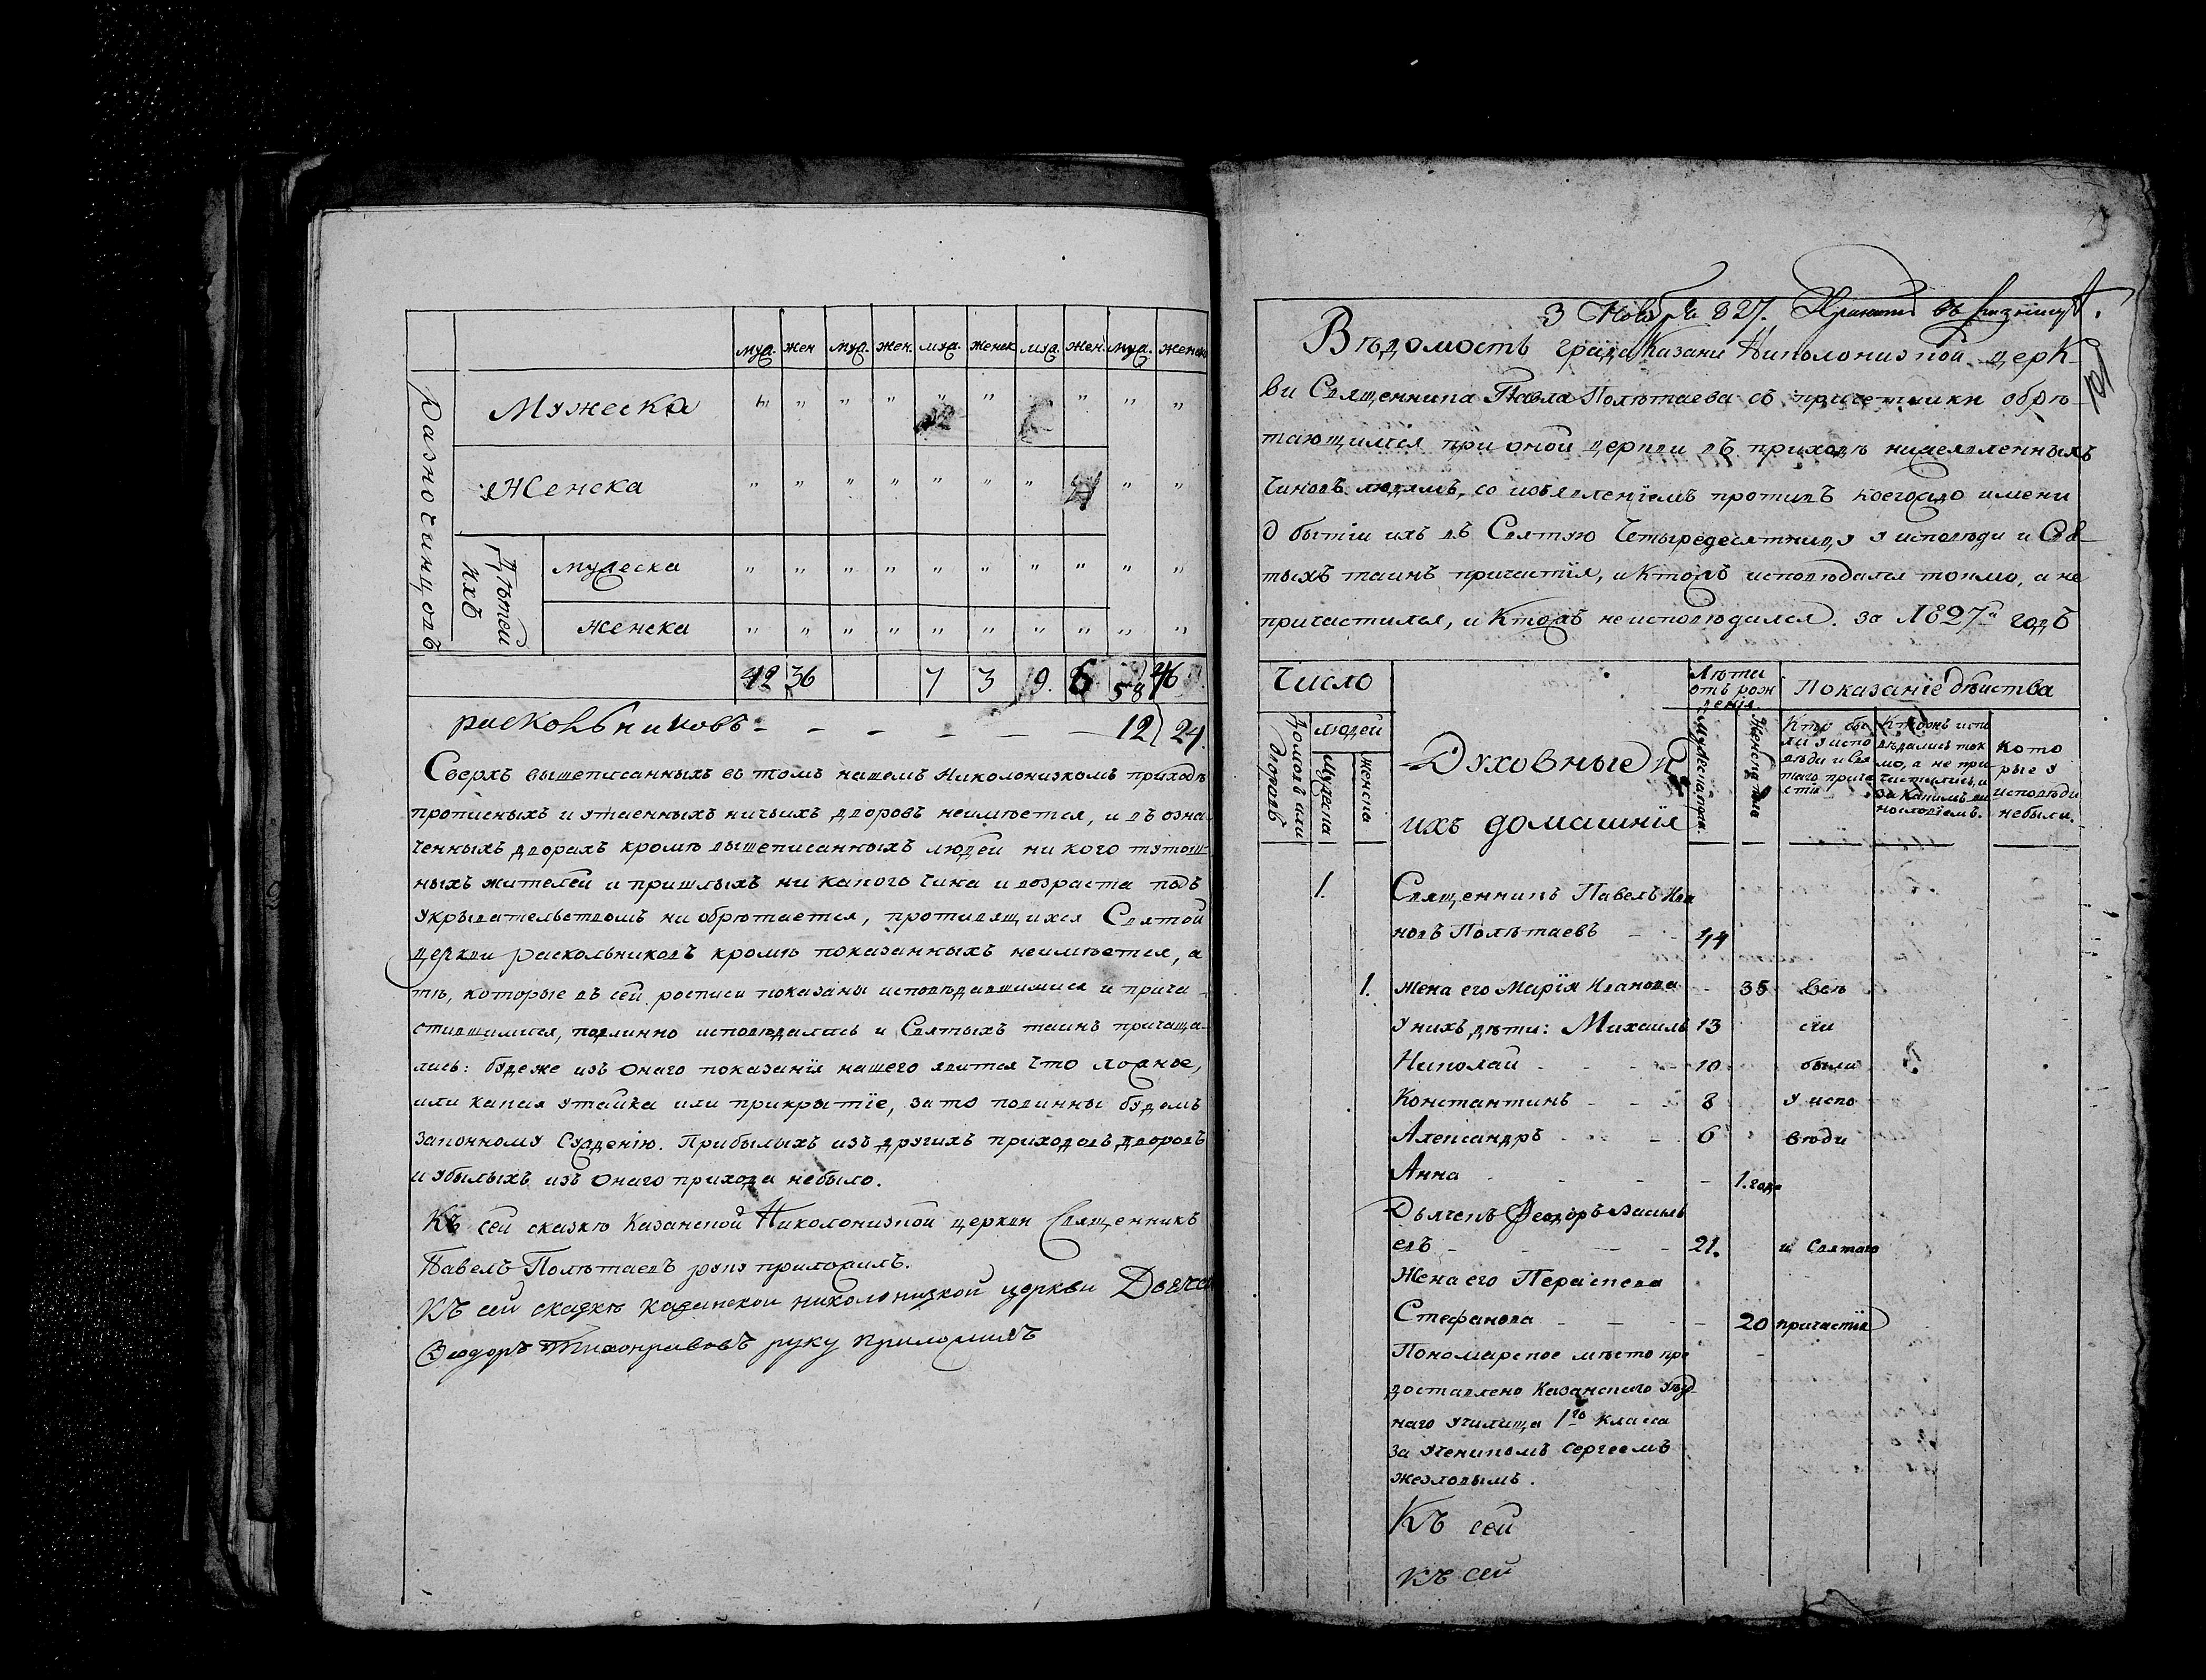 муж. жен муж. жен. муж. женск муж. жен. муж. женск
Разночинцовъ
Мужеска " " " " " " " " "
Женска " " " " " " " " "
Дѣтей ихъ
мужеска " " " " " " " " " "
женска " " " " " " " " " "
42 36 7 3 9. 6 58 46
расковьниковъ - - - - - - 12 24.
Сверхъ вышеписанныхъ въ томъ нашемъ Николонизкомъ приходѣ
прописныхъ и утаенныхъ ничьихъ дворовъ неимѣется, и въ озна-
ченныхъ дворахъ кромѣ вышеписанныхъ людей ни кого тутош-
ныхъ жителей и пришлыхъ ни какого чина и возраста подъ
укрывательствомъ ни обрѣтается, противящихся Святой
церкви раскольниковъ кромѣ показанныхъ неимѣется, а
тѣ, которые въ сей росписи показаны исповѣдавшимися и прича-
стившимися, подлинно исповѣдались и Святыхъ таинъ причаща-
лись: будеже изъ онаго показанія нашего явится что ложное,
или какая утайка или прикрытіе, за то повинны будемъ
законному Сужденію. Прибылыхъ изъ другихъ приходовъ дворовъ
и убылыхъ изъ онаго прихода небыло.
Къ сей сказкѣ Казанской Николонизкой церкви Священникъ
Павелъ Полѣтаевъ руку приложилъ.
Къ сей сказкѣ казанской николонизкой церкви Дьячекъ
Ѳеодоръ Тихонравовъ руку приложилъ
3 Ноября 827. въ
Вѣдомость града Казани Николонизкой церк-
ви Священника Павла Полѣтаева съ причетники обрѣ-
тающимся при оной церкви въ приходѣ нижеявленныхъ
чиновъ людямъ, со изъявленіемъ противъ коегождо имени
о бытіи ихъ въ Святую Четыредесятницу у исповѣди и Свя-
тыхъ таинъ причастія, и ктожъ исповѣдался токмо, а не
причастился, и ктожъ неисповѣдался. за 1827й годъ
Число
Лѣта отъ рожденія
Показаніе дѣйства
Домовъ или дворовъ
людей
Мужеска
женска
Духовные и
ихъ домашніе
Мужеска пола.
Женска пола
Кто бы
ли у испо
вѣди и Свя
таго прича
стія
Ктожъ испо
вѣдались ток
мо, а не при
частились, и
за какимъ ви
нословіемъ.
Кото
рые у
исповѣди
небыли.
1. Священникъ Павелъ Ива
новъ Полѣтаевъ - - 44
1. жена его Марія Иванова - 35 Всѣ
у нихъ дѣти: Михаилъ 13 сіи
Николай - - - 10 были
Константинъ - - 8 у испо
Александръ - - 6 вѣди
Анна - - - 1. годъ
Дьячекъ Ѳеодоръ Василь
евъ - - - - 21. и Святаго
Жена его Параскева
Стефанова - - - 20 причастія
Пономарское мѣсто пре
доставлено Казанскаго уѣзд-
наго училища 1го класса
за ученикомъ Сергеемъ
жезловымъ.
Къ сей
Къ сей